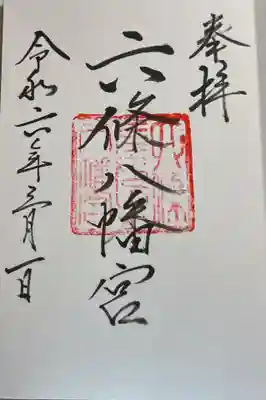 奉拝
六條八幡宮
令和六年三月一日